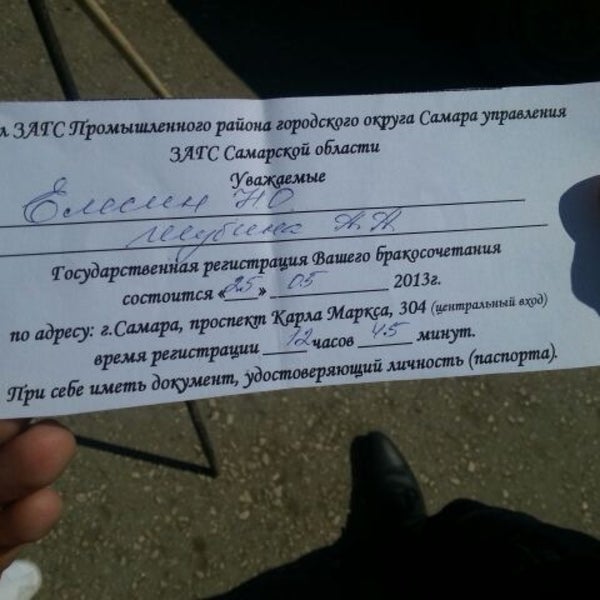 л ЗАГС Промышленного района городского округа Самара управления
ЗАГС Самарской области
Уважаемые
Елесин Н О
Шубина А А
Государственная регистрация Вашего бракосочетания
состоится «25» 05 2013г.
по адресу: г.Самара, проспект Карла Маркса, 304 (центральный вход)
время регистрации 12 часов 45 минут.
При себе иметь документ, удостоверяющий личность (паспорта).